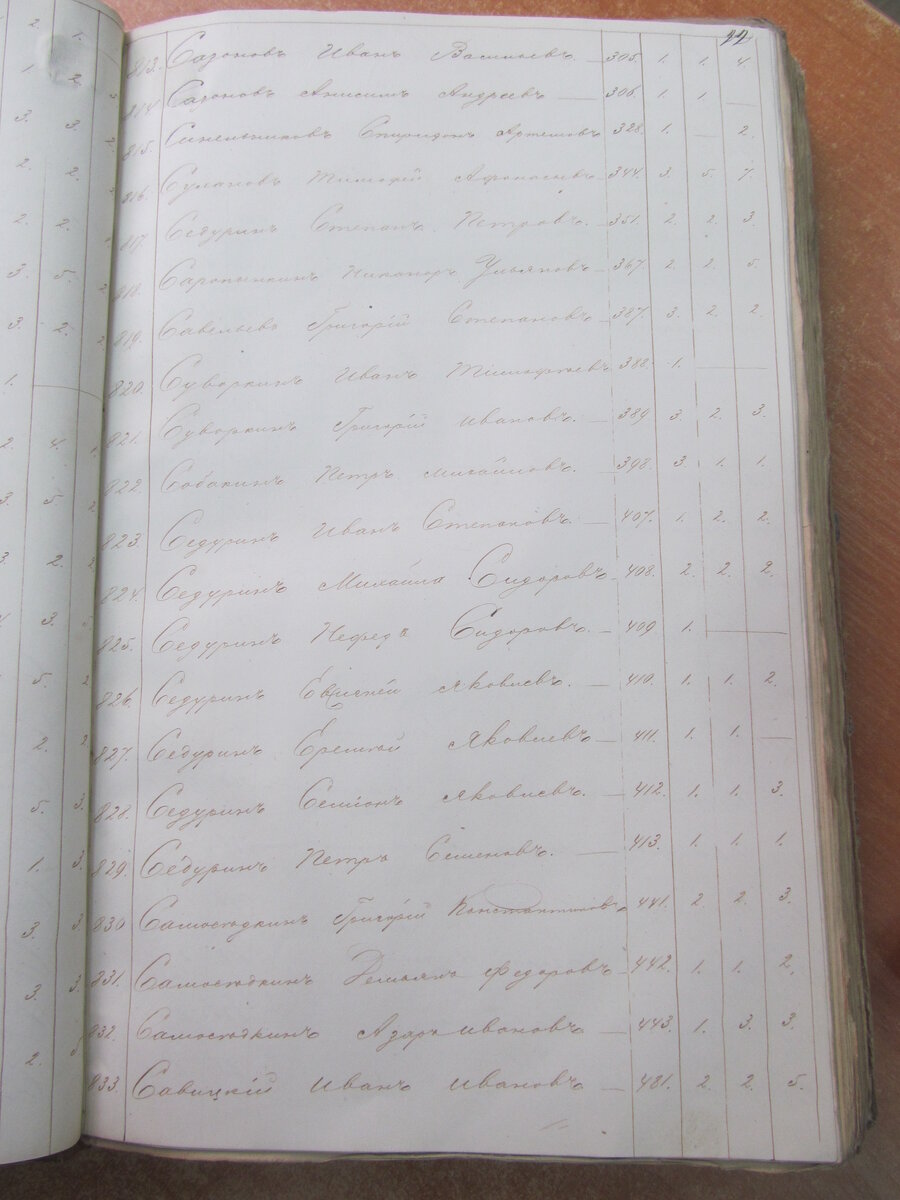 22
813. Сазоновъ Иванъ Васильевъ — 305. 1. 1. 4.
814. Сазоновъ Анисимъ Андреевъ — 306. 1. 1. —
815. Синельниковъ Спиридонъ Артемовъ 328. 1. — 2.
816. Сумановъ Тимофей Афонасьевъ 344. 3. 5. 7.
817. Седуринъ Степанъ Петровъ. 351. 2. 2. 3.
818. Никаноръ Ульяновъ — 367. 2. 2. 5.
819. Савельевъ Григорій Степановъ — 387. 3. 2. 2.
820. Суворкинъ Иванъ 388. 1. —
821. Суворкинъ Григорій Ивановъ. — 389 3. 2. 3.
822. Собакинъ Петръ Михайловъ. — 398. 3. 1. 1.
823. Седуринъ Иванъ Степановъ. — 407. 1. 2. 2.
824. Седуринъ Михайла Сидоровъ 408. 2. 2. 2.
825. Седуринъ Нефедъ Сидоровъ. — 409 1. —
826. Седуринъ Яковлевъ. — 410. 1. 1. 2.
827. Седуринъ Еремей Яковлевъ — 411. 1. 1. —
828. Седуринъ Семіонъ Яковлевъ. — 412. 1. 1. 3.
829. Седуринъ Петръ Семеновъ. — 413. 1. 1. 1.
830 Самосюдкинъ Григорій Константиновъ 441. 2 2. 3.
831. Самосюдкинъ Демьянъ Федоровъ — 442. 1. 1. 2.
832. Самосюдкинъ Азаръ Ивановъ — 443. 1. 3. 3.
833. Савицкій Иванъ Ивановъ — 481. 2. 2. 5.